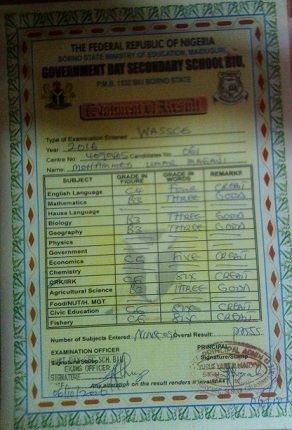 THE FEDERAL REPUBLIC OF NIGERIA
BORNO STATE MINISTRY OF EDUCATION, MAIDUGURI
GOVERNMENT DAY SECONDARY SCHOOL BIU.
P.M.B. 1532 BIU BORNO STATE
Statement Of Result
Type of Examination Entered WASSCE
Year 2016
Centre No: Candidates No: 061
Name: MOHAMMED UMAR
SUBJECT GRADE IN FIGURE GRADE IN WORDS REMARKS
English Language C4 FOUR CREDIT
Mathematics B3 THREE GOOD
Hausa Language
Biology B3 THREE GOOD
Geography B3 THREE GOOD
Physics
Government
Economics C5 FIVE CREDIT
Chemistry
CRK/IRK C6 SIX CREDIT
Agricultural Science B3 THREE GOOD
Food/NUT/H. MGT
Civic Education C6 SIX CREDIT
Fishery C6 SIX CREDIT
Number of Subjects Entered Overal Result: PASS
EXAMINATION OFFICER PRINCIPAL
Signature/Stamp Signature/Stamp
EXAMS OFFICER
SIGNATURE
Any alteration on the result renders it invalid